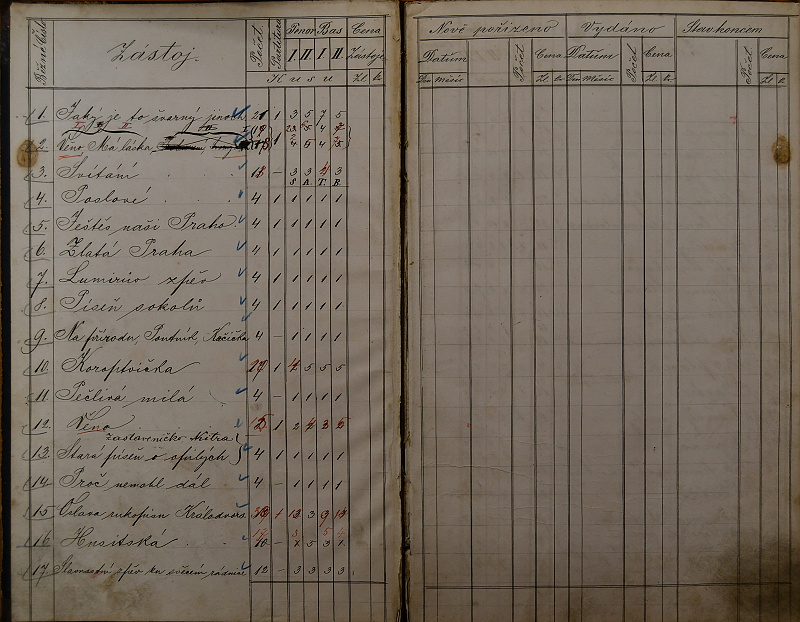 Běžné číslo Zástoj. Počet Partitura Tenor Bas Cena Zástoje
I. II. I. II.
Kusu Zl. kr.
1. Jaký je to švarný jinoch 21 1 3 5 7 5
2. Věno, Má láska, 4 5 4
3. Svítání 3 3 4 3
S. A. T. B.
4. Poslové 4 1 1 1 1 1
5. Ještěs naši Praho 4 1 1 1 1 1
6. Zlatá Praha 4 1 1 1 1 1
7. Lumírův zpěv 4 1 1 1 1 1
8. Píseň sokolů 4 1 1 1 1 1
9. Na přírodu, Poutník, Kačička 4 – 1 1 1 1
10. Koroptvička 1 4 5 5 5
11. Pečlivá milá 4 – 1 1 1 1
12. Věno 1 2 4 3 5
zastaveničko Nitra
13. Stará píseň o 4 1 1 1 1 1
14 Proč nemohl dál 4 – 1 1 1 1
15 Oslava rukopisu Královdvors. 1 13 3 9
16 Husitská 10 – 5 3 1
17 Slavnostní zpěv ku svěcení rádnice 12 – 3 3 3 3
Nově pořízeno Vydáno Stav koncem
Datum Počet Cena Datum Počet Cena Počet Cena
Den Měsíc Zl. kr. Den Měsíc Zl. kr. Zl. kr.